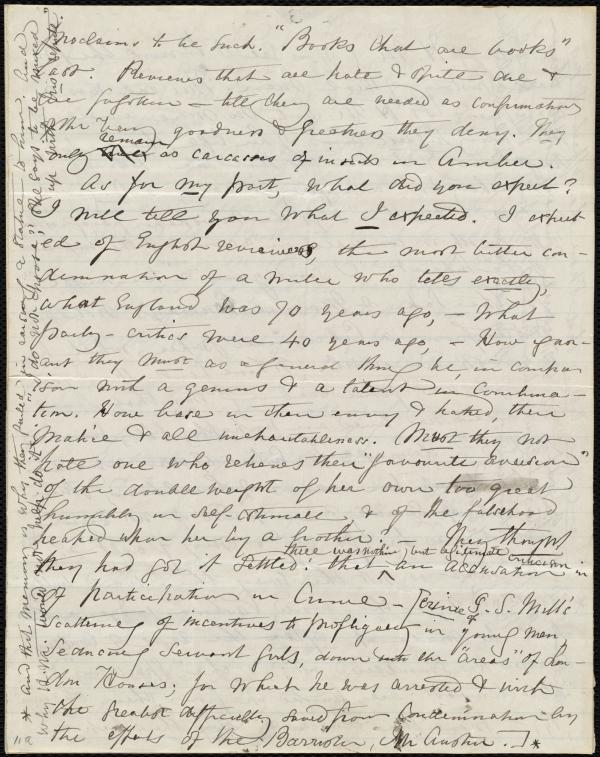 proclaims to be such. "Books that are books"
not. Reviews that are hate & spite die &
are forgotten — till they are needed as confirmation
of the very goodness & greatness they deny. They
only remain as carcases of insects in Amber.
As for my part, what did you expect?
I will tell you what I expected. I expect
ed of English reviewers, the most bitter con-
demnation of a writer who tells exactly,
what England was 70 years ago, — What
party-critics were 40 years ago, — How
ant they must as a general thing be, in compar
ison with a genius & a talent in combina-
tion. How base in their envy & hatred, their
malice & all uncharitableness. Must they not
hate one who relieves their "favourite aversion"
of the double weight of her own too great
humility in self-estimate, & of the falsehood
heaped upon her by a brother! — They thought
they had got it settled! that
there was nothing but a legitimate
an accusation in
of participation in Crime — [crime J. S. Mill's
scattering of incentives to profligacy in & young men,
seducing Servant Girls, down into the "areas" of Lon-
don Houses; for which he was arrested & with
the greatest difficulty saved from condemnation by
the efforts of the Barrister, Mr Austin.] *
* and that memoir is why they failed in raising a statue to him, and
why
"do not choose," she says to be mixed
up with